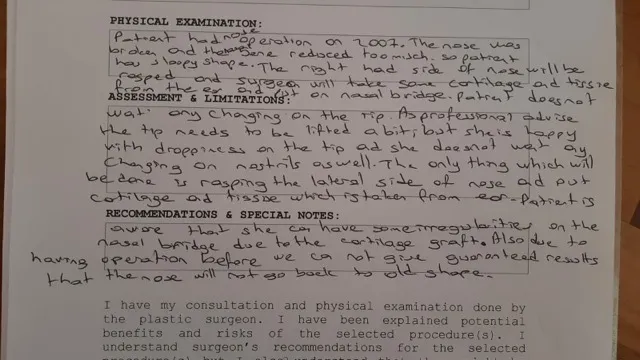 PHYSICAL EXAMINATION:
Patient had nose operation on 2007. The nose was
broken and the bone reduced too much. so patient
has sloopy shape. The right had side of nose will be
rasped and surgeon will take some cartilage ad tissue
from the ear ad put on nasal bridge. Patient does not
ASSESSMENT & LIMITATIONS:
wat any changing on the tip. As professional advise
the tip needs to be lifted a bit, but she is happy
with droppiness on the tip ad she doesnot wat ay
changing on nostrils as well. The only thing which will
be done is rasping the lateral side of nose ad put
cartilage ad tissue which is taken from ear. Patient is
RECOMMENDATIONS & SPECIAL NOTES:
aware that she ca have some irregularities on the
nasal bridge due to the cartilage graft. Also due to
having operation before we ca not give guaranteed results
that the nose will not go back to old shape.
I have my consultation and physical examination done by
the plastic surgeon. I have been explained potential
benefits and risks of the selected procedure(s). I
understand surgeon's recommendations for the selected
procedure(s) but I also understand that the